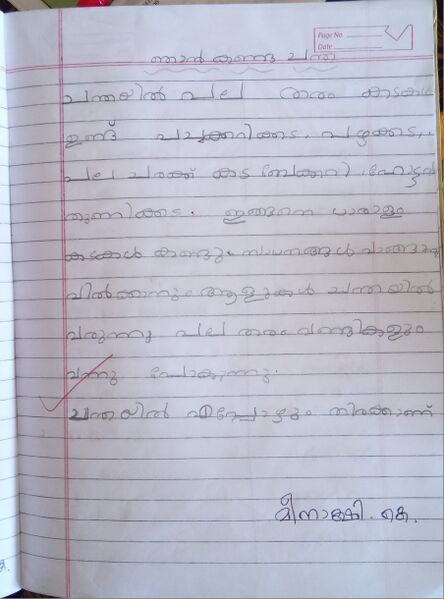 Page No.
Date
ഞാൻ കണ്ട ചന്ത
ചന്തയിൽ പല തരം കടകൾ
ഉണ്ട് പച്ചക്കറിക്കട, പഴക്കട,
പല ചരക്ക് കട ബേക്കറി, ഹോട്ടൽ
തുണിക്കട. ഇങ്ങനെ ധാരാളം
കടകൾ കാണും. സാധനങ്ങൾ വാങ്ങാനും
വിൽക്കാനും ആളുകൾ ചന്തയിൽ
വരുന്നു പല തരം വണ്ടികളും
വന്നു പോകുന്നു.
ചന്തയിൽ എപ്പോഴും തിരക്കാണ്
മീനാക്ഷി. കെ.